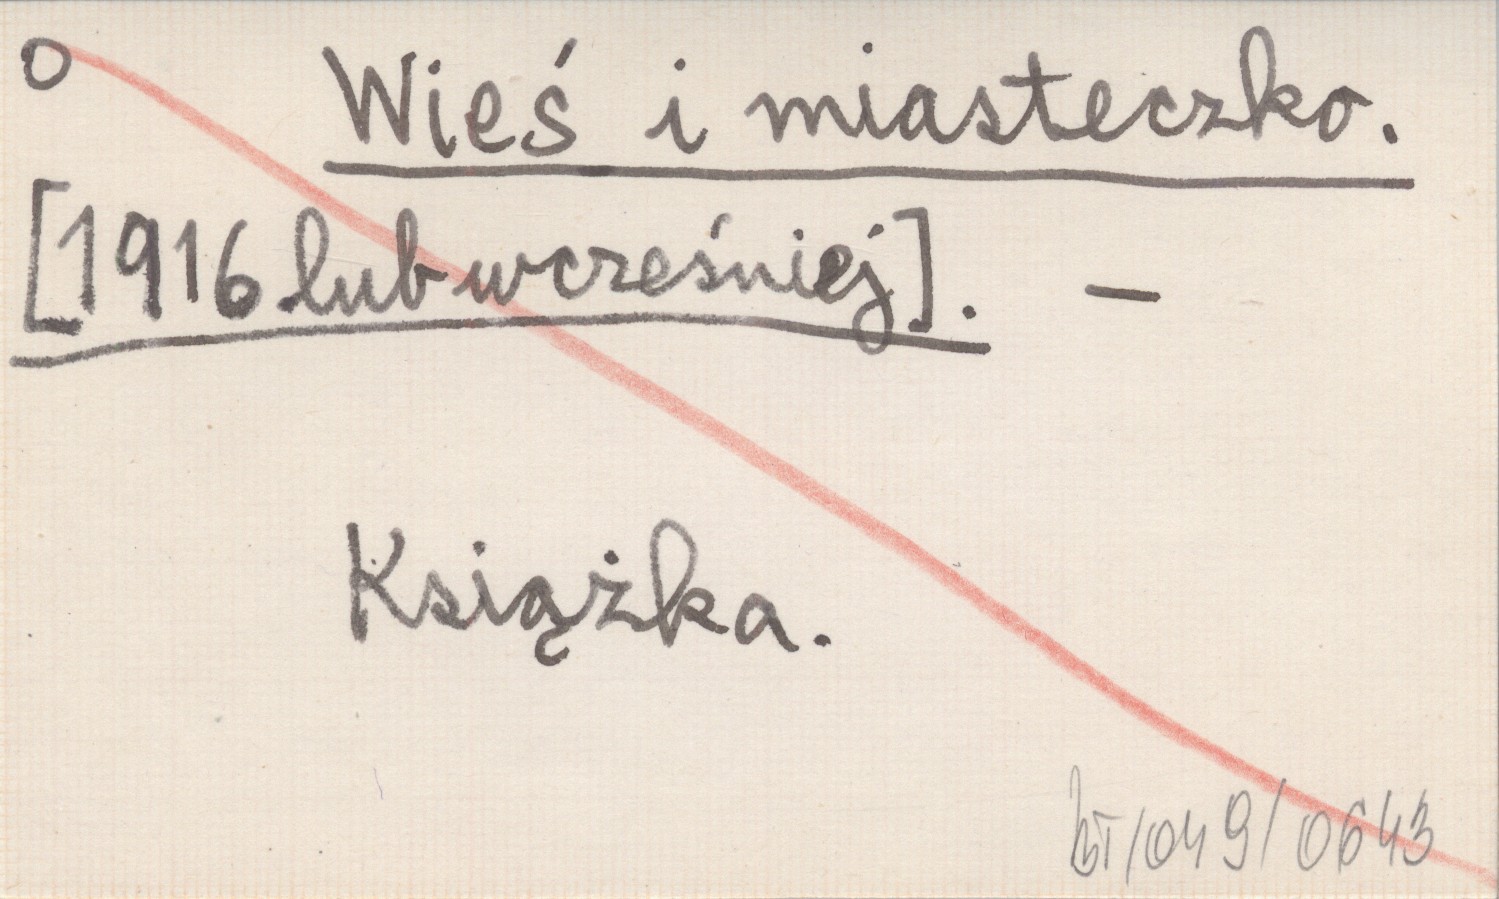 o Wieś i miasteczko.
[1916 lub wcześniej]. —
Książka.
/049/0643